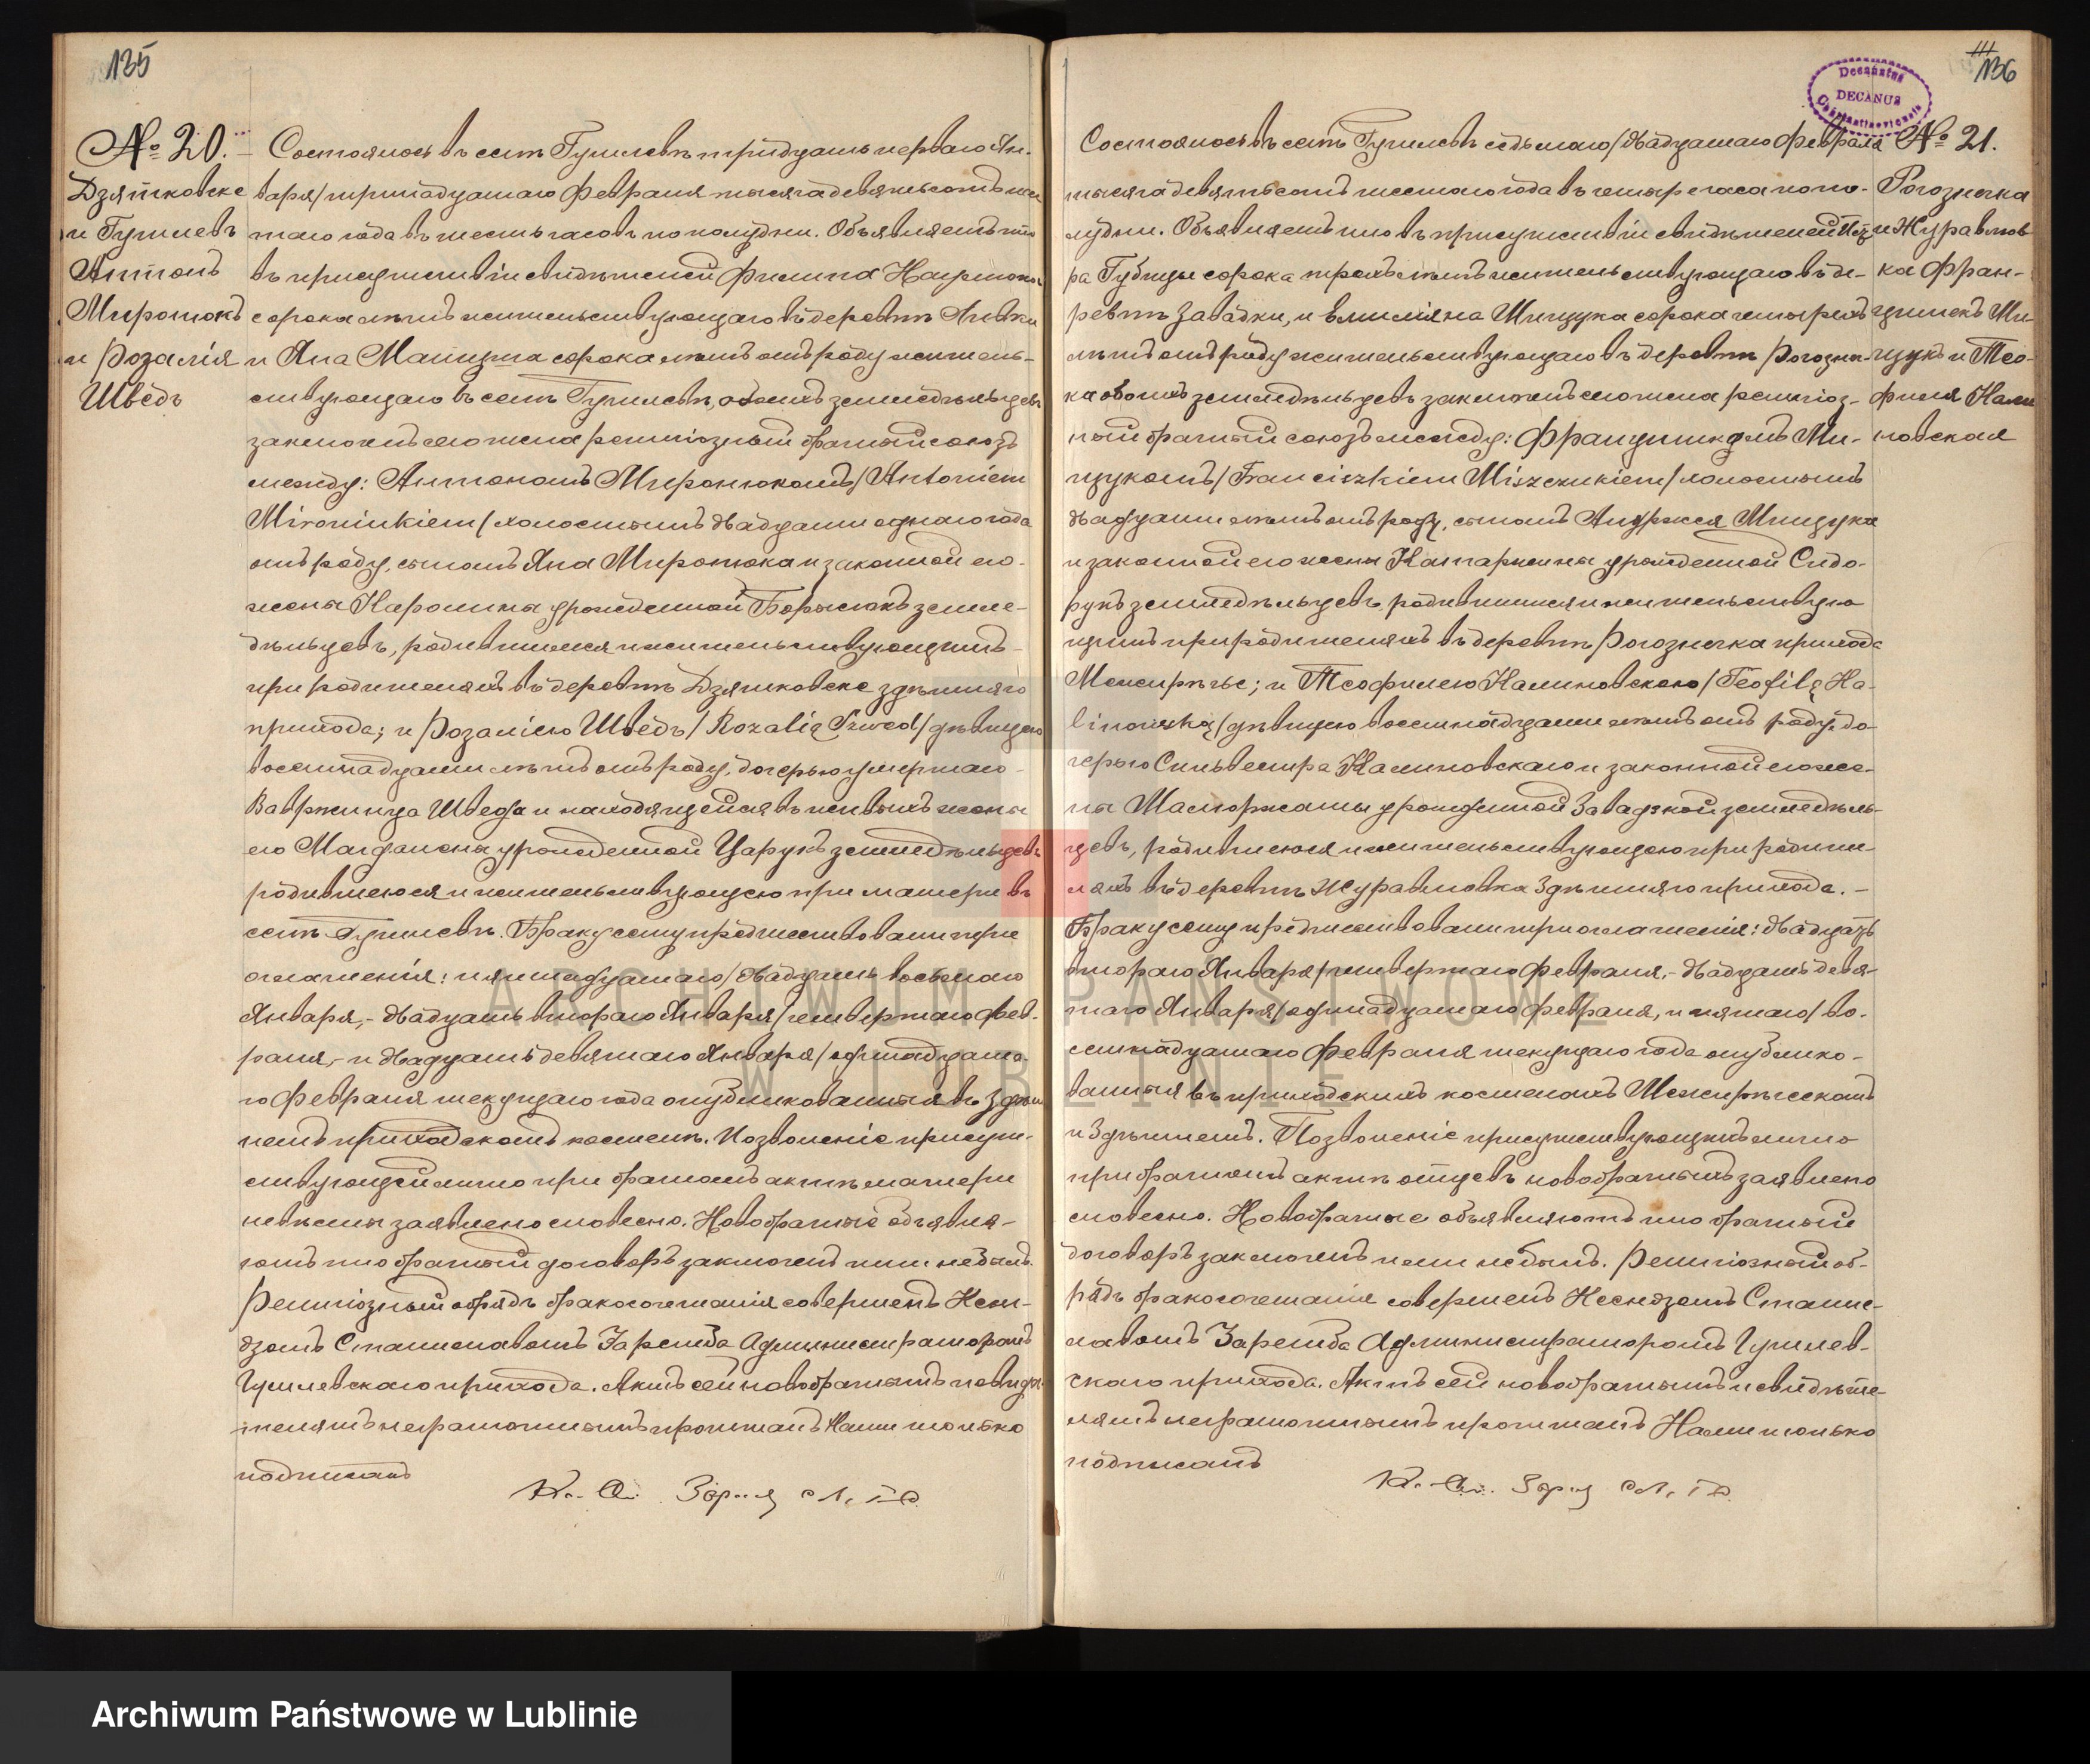 135
№ 20.
Дзятковске
и Гушлевъ
Антонъ
Миронюкъ
и Розалія
Шведъ
Состоялось въ селѣ Гушлевѣ тридцать перваго Ян-
варя/тринадцатаго Февраля тысяча девятьсотъ шес
таго года въ шесть часовъ по полудни. Объявляемъ что
въ присутствіи свидѣтелей Филипа
сорока лѣтъ жительствующаго въ деревнѣ
и Яна сорока лѣтъ отъ роду житель-
ствующаго въ селѣ Гушлевѣ, обоихъ земледѣльцевъ
заключенъ сего числа религіозный брачный союзъ
между: Антономъ Миронюкомъ/Antoniem
Mironiukiem/холостымъ двадцати однаго года
отъ роду, сыномъ Яна Миронюка и законной его
жены Каролины урожденной Борысюкъ земле-
дѣльцевъ, родившимся и жительствующимъ
при родителяхъ въ деревнѣ Дзятковске здѣшняго
прихода; и Розаліею Шведъ/Rozalią Szwed/дѣвицею
восемнадцати лѣтъ отъ роду, дочерью умершаго
Вавржинца Шведа и находящейся въ живыхъ жены
его Магдалены урожденной Царукъ земледѣльцевъ
родившеюся и жительствующею при матери въ
селѣ Гушлевѣ. Браку сему предшествовали три
оглашенія: пятнадцатаго/двадцать восьмаго
Января,- двадцать втораго Января/четвертаго Фев-
раля,- и двадцать девятаго Января/одинадцата-
го Февраля текущаго года опубликованныя въ здѣш
немъ приходскомъ костелѣ. Позволеніе присут-
ствующей лично при брачномъ актѣ матери
невѣсты заявлено словесно. Новобрачные объявля-
ютъ что брачный договоръ заключенъ ними небылъ.
Религіозный обрядъ бракосочетанія совершенъ Ксен-
дзомъ Станиславомъ Заремба Администраторомъ
Гушлевскаго прихода. Актъ сей новобрачнымъ и свидѣ-
телямъ неграмотнымъ прочитанъ Нами только
подписанъ
111
136
Decanatus
DECANUS
Constantinoviensis
№ 21.
Рогозничка
и Журавлов
ка Фран-
цишекъ Ми-
щукъ и Тео-
филя Кали
новская
Состоялось въ селѣ Гушлевѣ седьмаго/двадцатаго Февраля
тысяча девятьсотъ шестаго года въ четыре часа по по-
лудни. Объявляемъ что въ присутствіи свидѣтелей
ра Губицы сорока трехъ лѣтъ жительствующаго въ де-
ревнѣ Завадки, и Емиліяна Мищука сорока четырехъ
лѣтъ отъ роду жительствующаго въ деревнѣ Рогознич-
ка обоихъ земледѣльцевъ заключенъ сего числа религіоз-
ный брачный союзъ между: Францишкомъ Ми-
щукомъ/Franciszkiem Miszczukiem/холостымъ
двадцати лѣтъ отъ роду, сыномъ Андржея Мищука
и законной его жены Катаржины урожденной Сидо-
рукъ земледѣльцевъ, родившимся и жительствую
щимъ при родителяхъ въ деревнѣ Рогозничка прихода
Межирѣчье; и Теофилею Калиновскою/Teofilą Ka-
linowską/дѣвицею восемнадцати лѣтъ отъ роду, до-
черью Сильвестра Калиновскаго и законной его же-
ны Малгоржаты урожденной Завадзкой земледѣль-
цевъ, родившеюся и жительствующею при родите-
ляхъ въ деревнѣ Журавловка здѣшняго прихода. -
Браку сему предшествовали три оглашенія: двадцать
втораго Января/четвертаго Февраля,- двадцать девя-
таго Января/одинадцатаго Февраля, и пятаго/во-
семнадцатаго Февраля текущаго года опублико-
ванныя въ приходскихъ костелахъ Межирѣческомъ
и здѣшнемъ. Позволеніе присутствующихъ лично
при брачномъ актѣ отцевъ новобрачныхъ заявлено
словесно. Новобрачные объявляютъ что брачный
договоръ заключенъ ними небылъ. Религіозный об-
рядъ бракосочетанія совершенъ Ксендзомъ Станис-
лавомъ Заремба Администраторомъ Гушлев-
скаго прихода. Актъ сей новобрачнымъ и свидѣте-
лямъ неграмотнымъ прочитанъ Нами только
подписанъ
ARCHIWUM PAŃSTWOWE
W LUBLINIE
Archiwum Państwowe w Lublinie